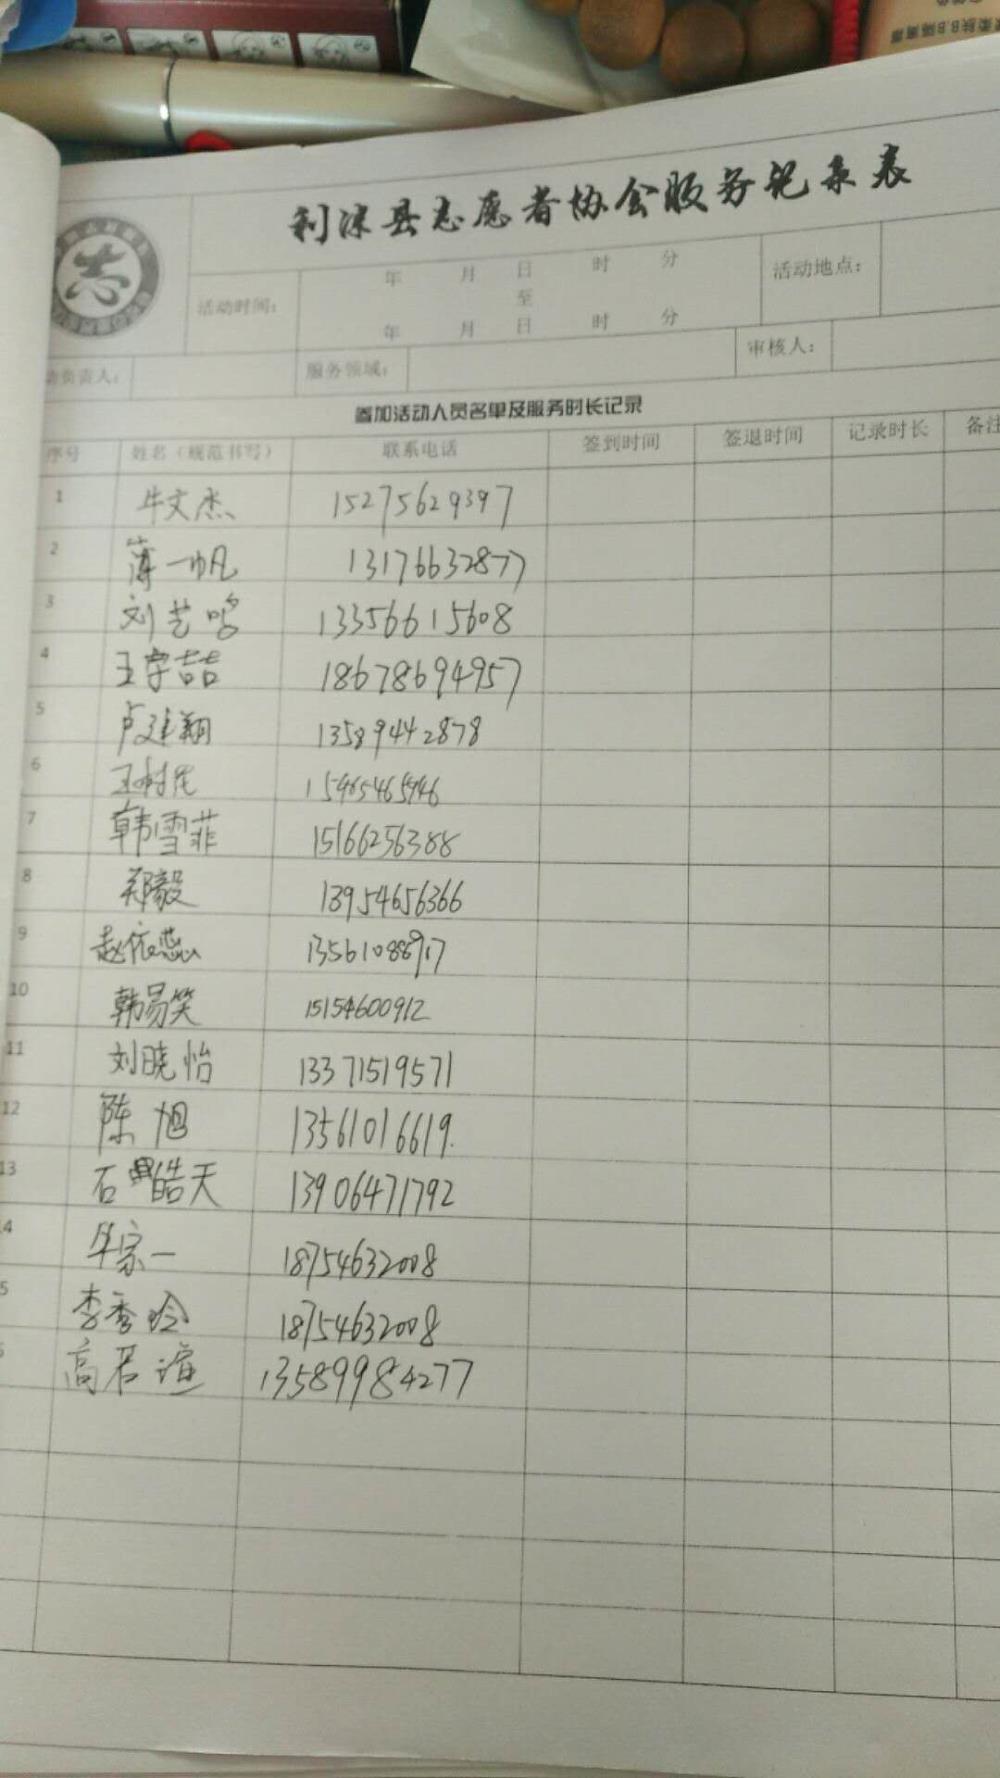 利津县志愿者协会服务记录表
志
活动时间： 年 月 日 时 分 至 年 月 日 时 分 活动地点：
动负责人： 服务领域： 审核人：
参加活动人员名单及服务时长记录
序号 姓名（规范书写） 联系电话 签到时间 签退时间 记录时长 备注
1 牛文杰 15275629397
2 薄一帆 13176632877
3 刘艺鸣 13356615608
4 王学喆 18678694957
5 卢建翔 13589442878
6 15465465946
7 韩雪菲 15166256388
8 郑毅 13954656366
9 赵依蕊 13561088917
10 韩易笑 15154600912
11 刘晓怡 13371519571
12 陈旭 13561016619.
13 石皓天 13906471792
4 牟宗一 18754632008
5 李秀玲 18754632008
高若谊 13589984277